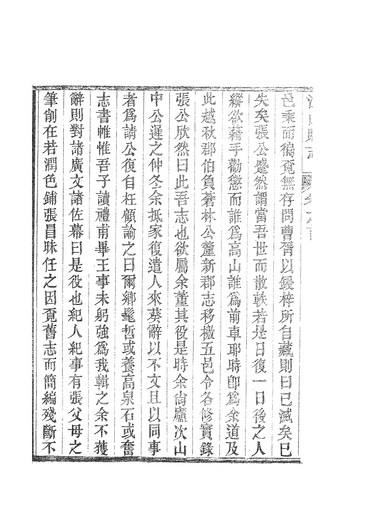 邑乘而徧覔無存問曹胥以鋟梓所自藏則曰已滅矣已
失矣張公蹙然謂當吾世而散軼若是日復一日後之人
縱欲藉手勸懲而誰爲高山誰爲前車耶時卽爲余道及
此越秋郡伯負蒼林公釐新郡志移檄五邑令各修實錄
張公欣然曰此吾志也欲屬余董其役是時余尙廬次山
中公遲之仲冬余抵家復遣人來葵辭以不文且以同事
者爲請公復自枉顧諭之曰爾鄉耄哲或養高泉石或奮
志書帷惟吾子讀禮甫畢王事未躬強爲我輯之余不獲
辭則對諸廣文諸佐幕曰是役也紀人紀事有張父母之
筆削在若潤色鋪張昌昧任之因覔舊志而簡編殘斷不